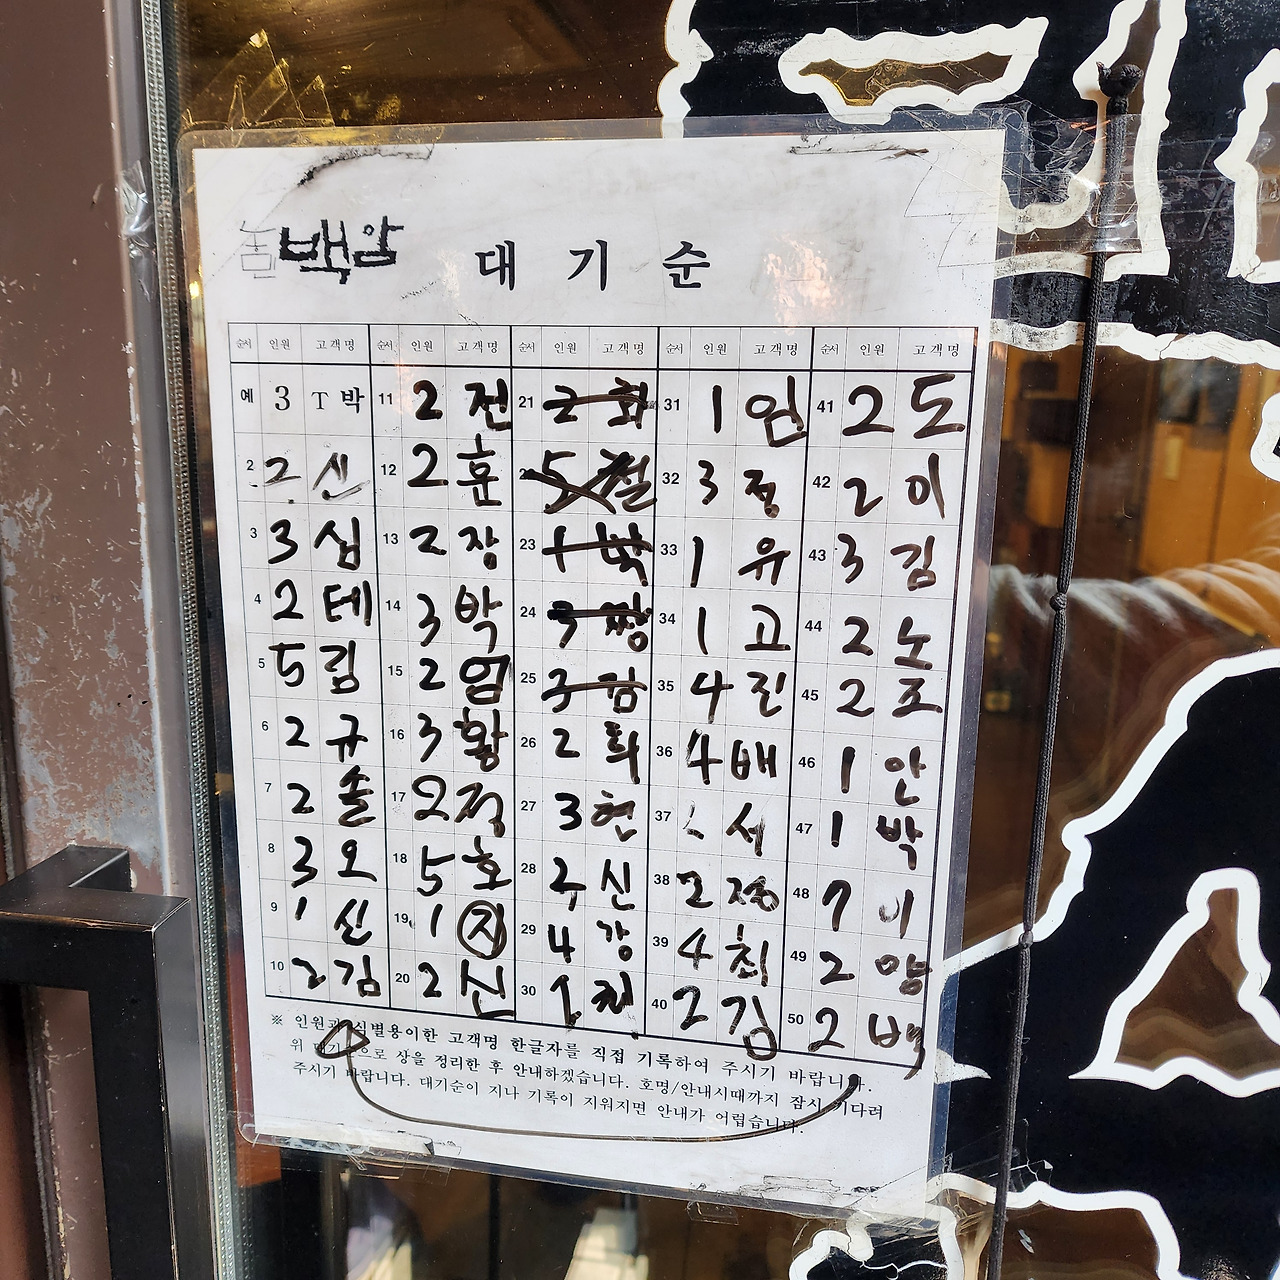 백암 대기순
순서 인원 고객명 순서 인원 고객명 순서 인원 고객명 순서 인원 고객명 순서 인원 고객명
예 3 T박 11 2 전 21 2 31 1 임 41 2 도
2 2 신 12 2 훈 5 철 32 3 정 42 2 이
3 3 심 13 2 장 23 1 박 33 1 유 43 3 김
4 2 테 14 3 박 24 3 짱 34 1 고 44 2 노
5 5 림 15 2 엄 25 3 김 35 4 진 45 2 조
6 2 규 16 3 황 26 2 희 36 4 배 46 1 안
7 2 솔 17 2 정 27 3 현 37 서 47 1 박
8 3 오 18 5 호 28 2 신 38 2 정 48 7 이
9 1 신 19 1 지 29 4 강 39 4 최 49 2 양
10 2 김 20 2 신 30 1 40 2 김 50 2 백
※ 인원과 식별용이한 고객명 한글자를 직접 기록하여 주시기 바랍니다.
위 대기순으로 상을 정리한 후 안내하겠습니다. 호명/안내시때까지 잠시 기다려
주시기 바랍니다. 대기순이 지나 기록이 지워지면 안내가 어렵습니다.